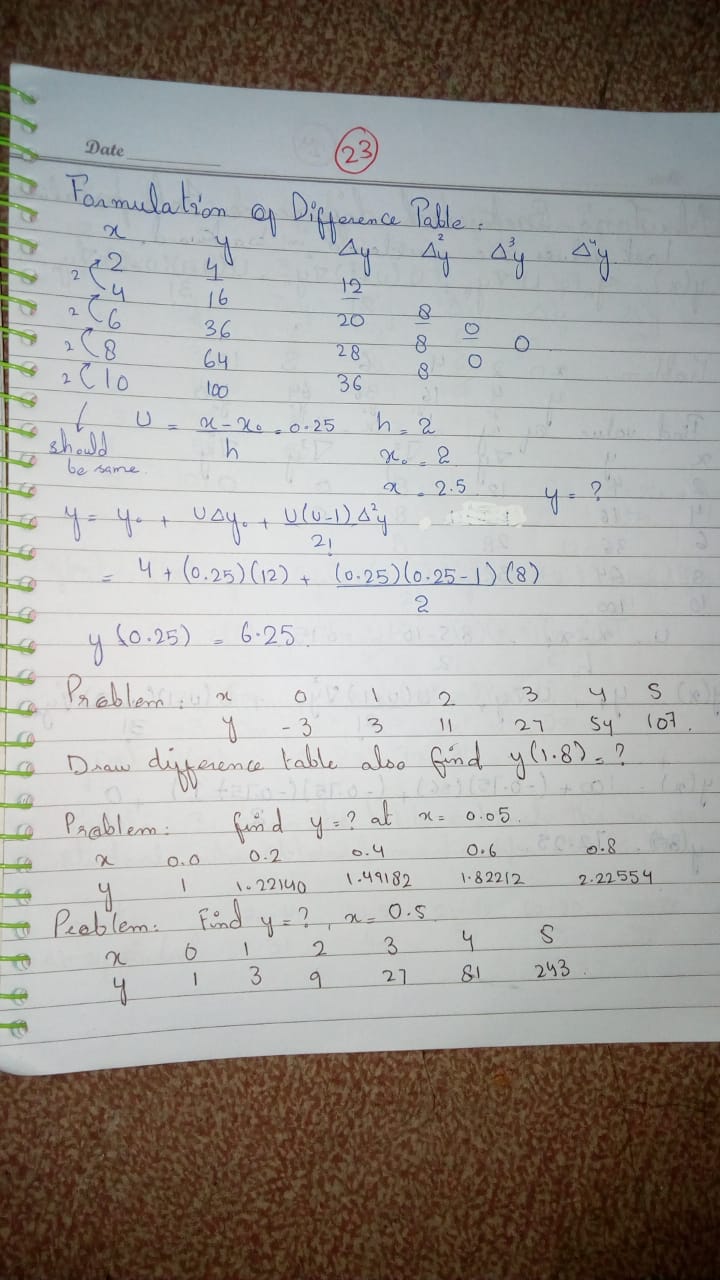 Date
23
Formulation of Difference Table:
x y Δy Δ²y Δ³y Δ⁴y
2 2 4 12
2 4 16 20 8 0
2 6 36 28 8 0 0
2 8 64 36 8
10 100
should be same.
U = x - x₀ / h = 0.25 h = 2
x₀ = 2
x = 2.5 y = ?
y = y₀ + UΔy₀ + U(U-1)Δ²y / 2!
= 4 + (0.25)(12) + (0.25)(0.25-1)(8) / 2
y(0.25) = 6.25.
Problem: x 0 1 2 3 4 5
y -3 3 11 27 54 107.
Draw difference table also find y(1.8) = ?
Problem: find y = ? at x = 0.05.
x 0.0 0.2 0.4 0.6 0.8
y 1 1.22140 1.49182 1.82212 2.22554
Problem: Find y = ?, x = 0.5
x 0 1 2 3 4 5
y 1 3 9 27 81 243.